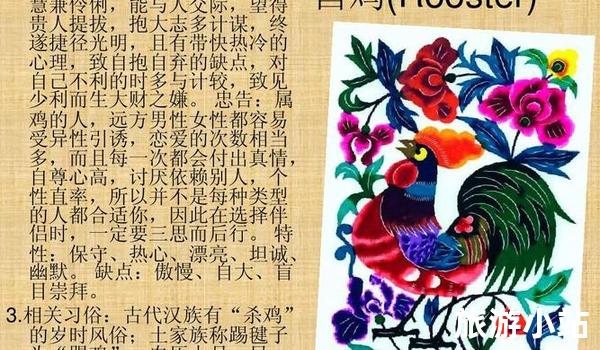 慧兼伶俐，能与人交际，望得
贵人提拔，抱大志多计谋，终
遂捷径光明，且有带快热冷的
心理，致自抱自弃的缺点，对
自己不利的时多与计较，致见
少利而生大财之嫌。 忠告：属
鸡的人，远方男性女性都容易
受异性引诱，恋爱的次数相当
多，而且每一次都会付出真情，
自尊心高，讨厌依赖别人，个
性直率，所以并不是每种类型
的人都合适你，因此在选择伴
侣时，一定要三思而后行。 特
性：保守、热心、漂亮、坦诚、
幽默。 缺点：傲慢、自大、盲
目崇拜。
3.相关习俗：古代汉族有“杀鸡”
的岁时风俗；土家族称踢毽子
(Rooster)
旅游小站